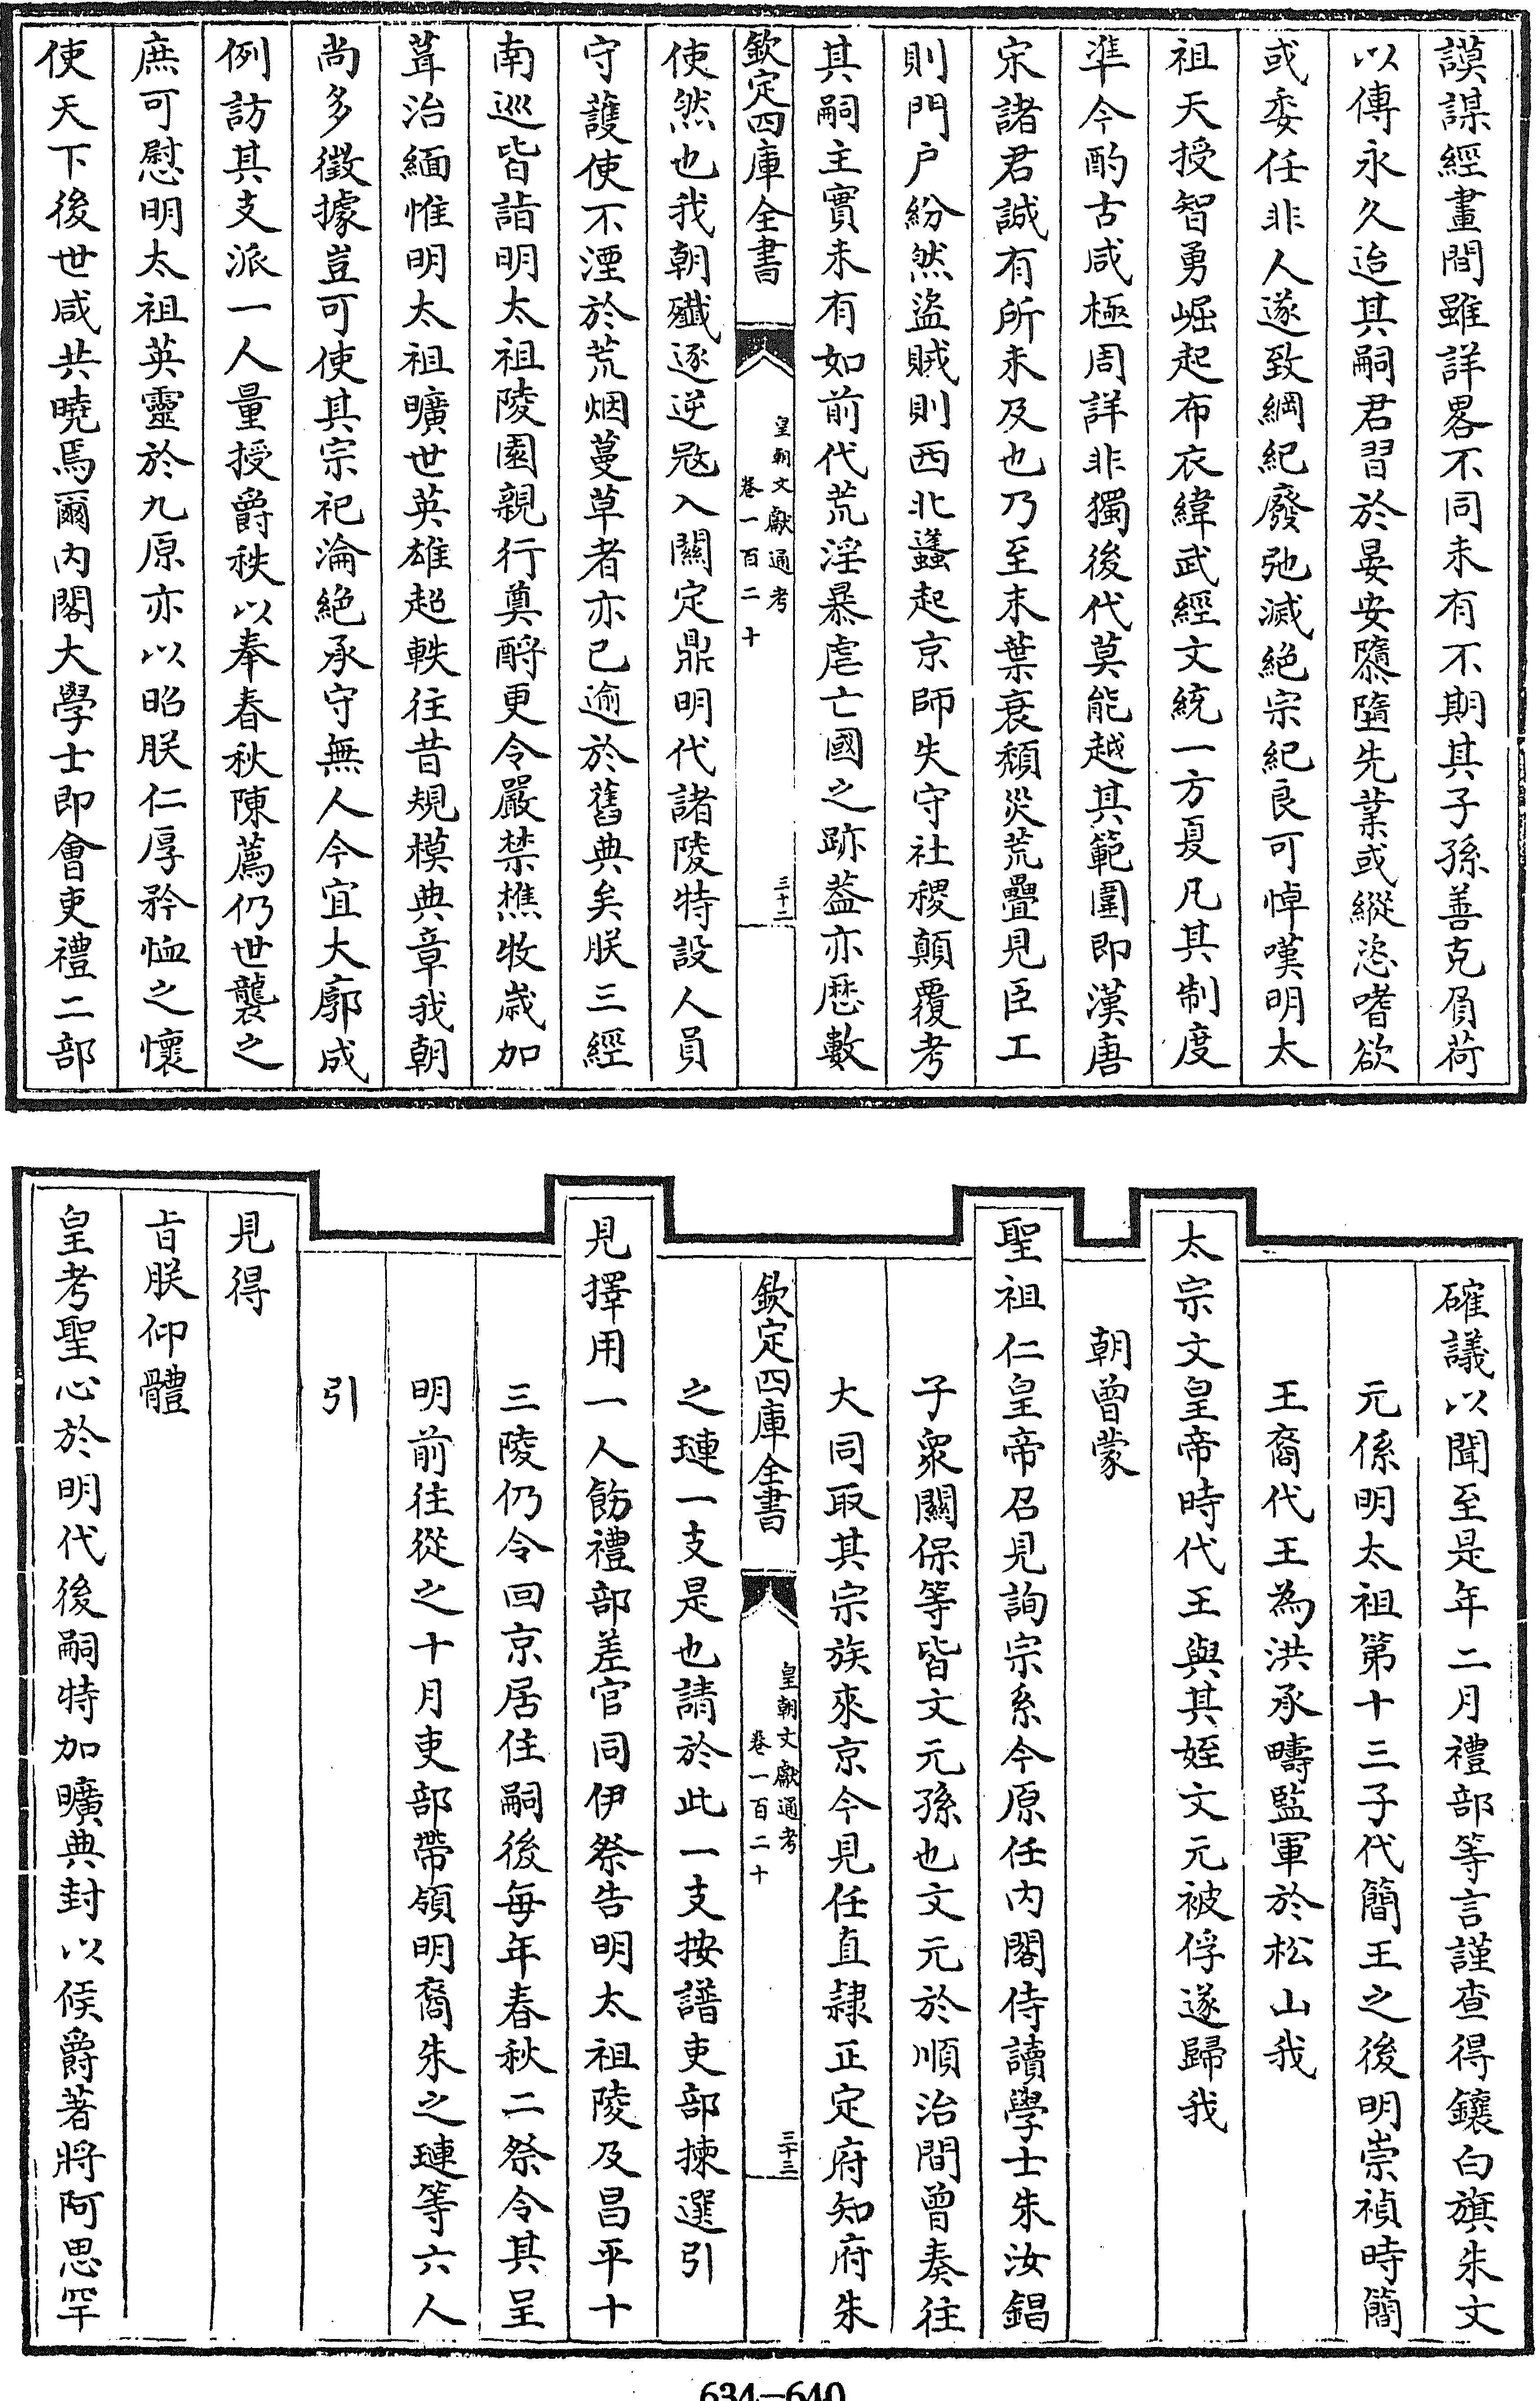 謨謀經畫間雖詳畧不同未有不期其子孫善克負荷
以傳永久迨其嗣君習於晏安隳墮先業或縱恣嗜欲
或委任非人遂致綱紀廢弛滅絕宗紀良可悼嘆明太
祖天授智勇崛起布衣緯武經文統一方夏凡其制度
準今酌古咸極周詳非獨後代莫能越其範圍即漢唐
宋諸君誠有所未及也乃至末葉衰頹災荒疊見臣工
則門户紛然盜賊則西北蠭起京師失守社稷顛覆考
其嗣主實未有如前代荒淫暴虐亡國之跡葢亦厯數
欽定四庫全書
皇朝文獻通考
卷一百二十
三十二
使然也我朝殲逐逆㓂入關定鼎明代諸陵特設人員
守護使不湮於荒烟蔓草者亦已逾於舊典矣朕三經
南巡皆詣明太祖陵園親行奠酹更令嚴禁樵牧嵗加
葺治緬惟明太祖曠世英雄超軼往昔規模典章我朝
尚多徵據豈可使其宗祀淪絕承守無人今宜大廓成
例訪其支派一人量授爵秩以奉春秋陳薦仍世襲之
庶可慰明太祖英靈於九原亦以昭朕仁厚矜恤之懷
使天下後世咸共曉焉爾内閣大學士即會吏禮二部
確議以聞至是年二月禮部等言謹查得鑲白旗朱文
元係明太祖第十三子代簡王之後明崇禎時簡
王裔代王為洪承疇監軍於松山我
太宗文皇帝時代王與其姪文元被俘遂歸我
朝曾蒙
聖祖仁皇帝召見詢宗系今原任内閣侍讀學士朱汝錩
子衆關保等皆文元孫也文元於順治間曾奏往
大同取其宗族來京今見任直隸正定府知府朱
欽定四庫全書
皇朝文獻通考
卷一百二十
三十三
之璉一支是也請於此一支按譜吏部揀選引
見擇用一人飭禮部差官同伊祭告明太祖陵及昌平十
三陵仍令回京居住嗣後每年春秋二祭令其呈
明前往從之十月吏部帶領明裔朱之璉等六人
引
見得
㫖朕仰體
皇考聖心於明代後嗣特加曠典封以候爵著將阿思罕
634—640